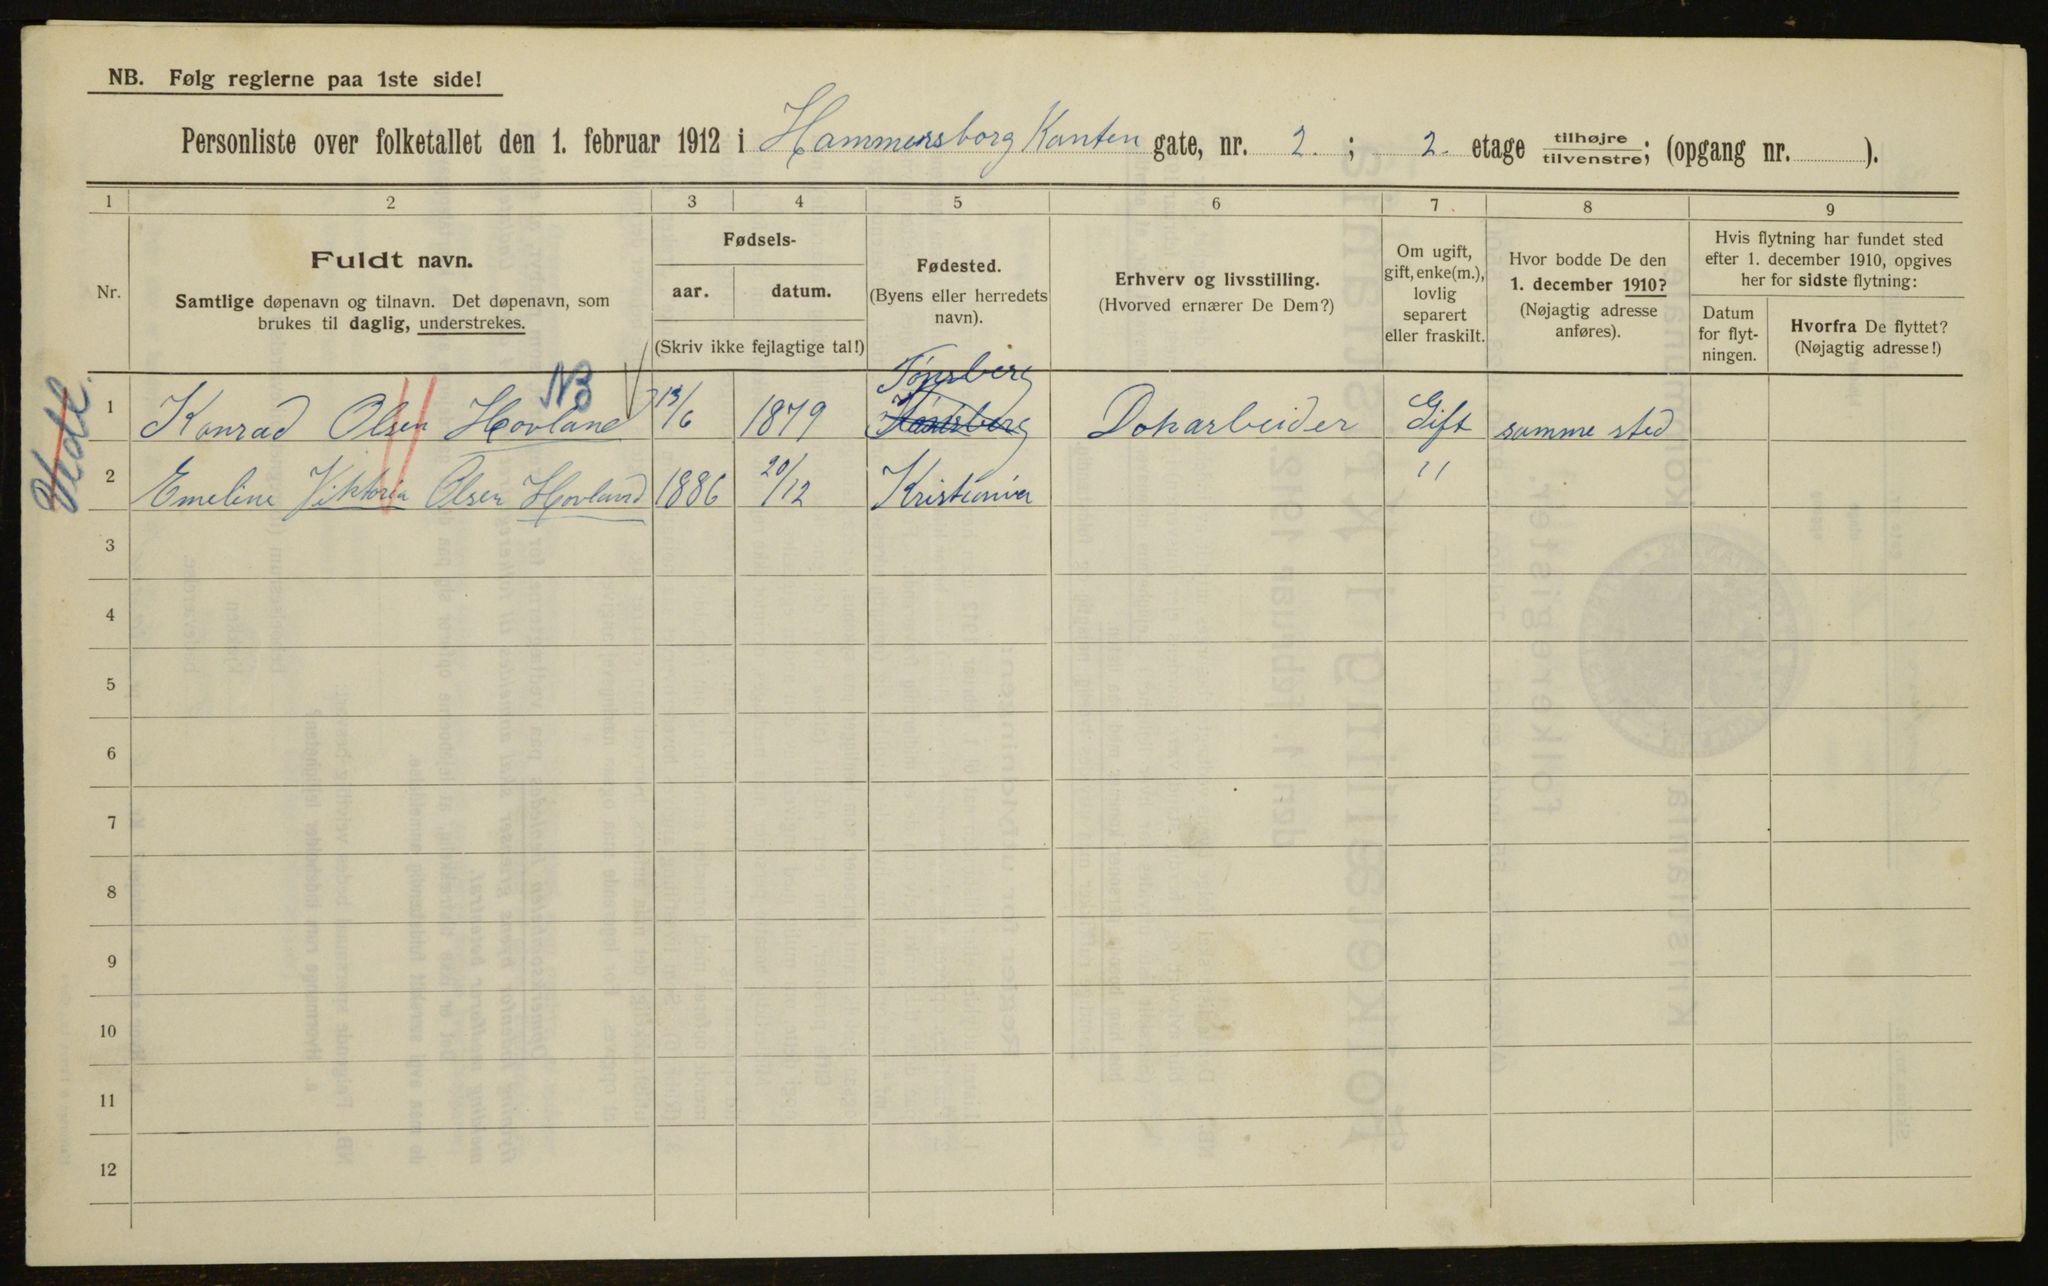 NB. Følg reglerne paa 1ste side!
Personliste over folketallet den 1. februar 1912 i Hammersborg Kanten gate, nr. 2. ; 2. etage tilhøjre/tilvenstre; (opgang nr. ).
1 2 3 4 5 6 7 8 9
Nr.
Fuldt navn.
Samtlige døpenavn og tilnavn. Det døpenavn, som
brukes til daglig, understrekes.
Fødsels-
aar. datum.
(Skriv ikke fejlagtige tal!)
Fødested.
(Byens eller herredets
navn).
Erhverv og livsstilling.
(Hvorved ernærer De Dem?)
Om ugift,
gift, enke(m.),
lovlig
separert
eller fraskilt.
Hvor bodde De den
1. december 1910?
(Nøjagtig adresse
anføres).
Hvis flytning har fundet sted
efter 1. december 1910, opgives
her for sidste flytning:
Datum
for flyt-
ningen.
Hvorfra De flyttet?
(Nøjagtig adresse!)
NB
Tønsberg
1 Konrad Olsen Hovland 13/6 1879 Dokarbeider Gift samme sted
2 Emeline Viktoria Olsen Hovland 1886 20/12 Kristiania "
3
4
5
6
7
8
9
10
11
12